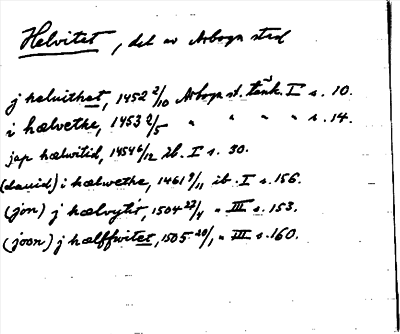 Helvitet, del av Arboga stad
j heluithet, 1452 2/10 Arboga st. tänk. I s. 10.
i hælvethe, 1453 2/5 " " " " s. 14.
jap hælwitid, 1454 6/12 ib. I s. 30.
(dauid) i hælwethe, 1461 9/11 ib. I s. 156.
(jon) j hælvytit, 1504 22/4 " III s. 153.
(joon) j hælffwitet, 1505 20/1 " III s. 160.